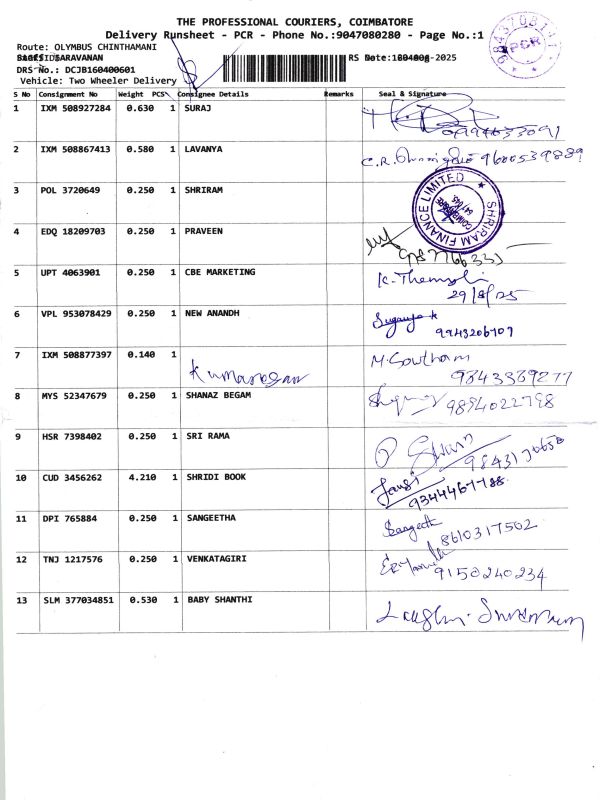 THE PROFESSIONAL COURIERS, COIMBATORE
Delivery Runsheet - PCR - Phone No.:9047080280 - Page No.:1
Route: OLYMBUS CHINTHAMANI
SARAVANAN -2025
DRS No.: DCJB160400601
Vehicle: Two Wheeler Delivery
PCR
S No Consignment No Weight PCS Consignee Details Remarks Seal & Signature
1 IXM 508927284 0.630 1 SURAJ
2 IXM 508867413 0.580 1 LAVANYA C.R. 9600539889
3 POL 3720649 0.250 1 SHRIRAM
SHRIRAM FINANCE LIMITED
COIMBATORE
4 EDQ 18209703 0.250 1 PRAVEEN
5 UPT 4063901 0.250 1 CBE MARKETING K.
29/8/25
6 VPL 953078429 0.250 1 NEW ANANDH
9943206709
7 IXM 508877397 0.140 1 M. Gowtham
Kumaresan 9843389277
8 MYS 52347679 0.250 1 SHANAZ BEGAM 9894022798
9 HSR 7398402 0.250 1 SRI RAMA
10 CUD 3456262 4.210 1 SHRIDI BOOK
9344467788
11 DPI 765884 0.250 1 SANGEETHA Sangeeth
8610317502
12 TNJ 1217576 0.250 1 VENKATAGIRI
9150240234
13 SLM 377034851 0.530 1 BABY SHANTHI